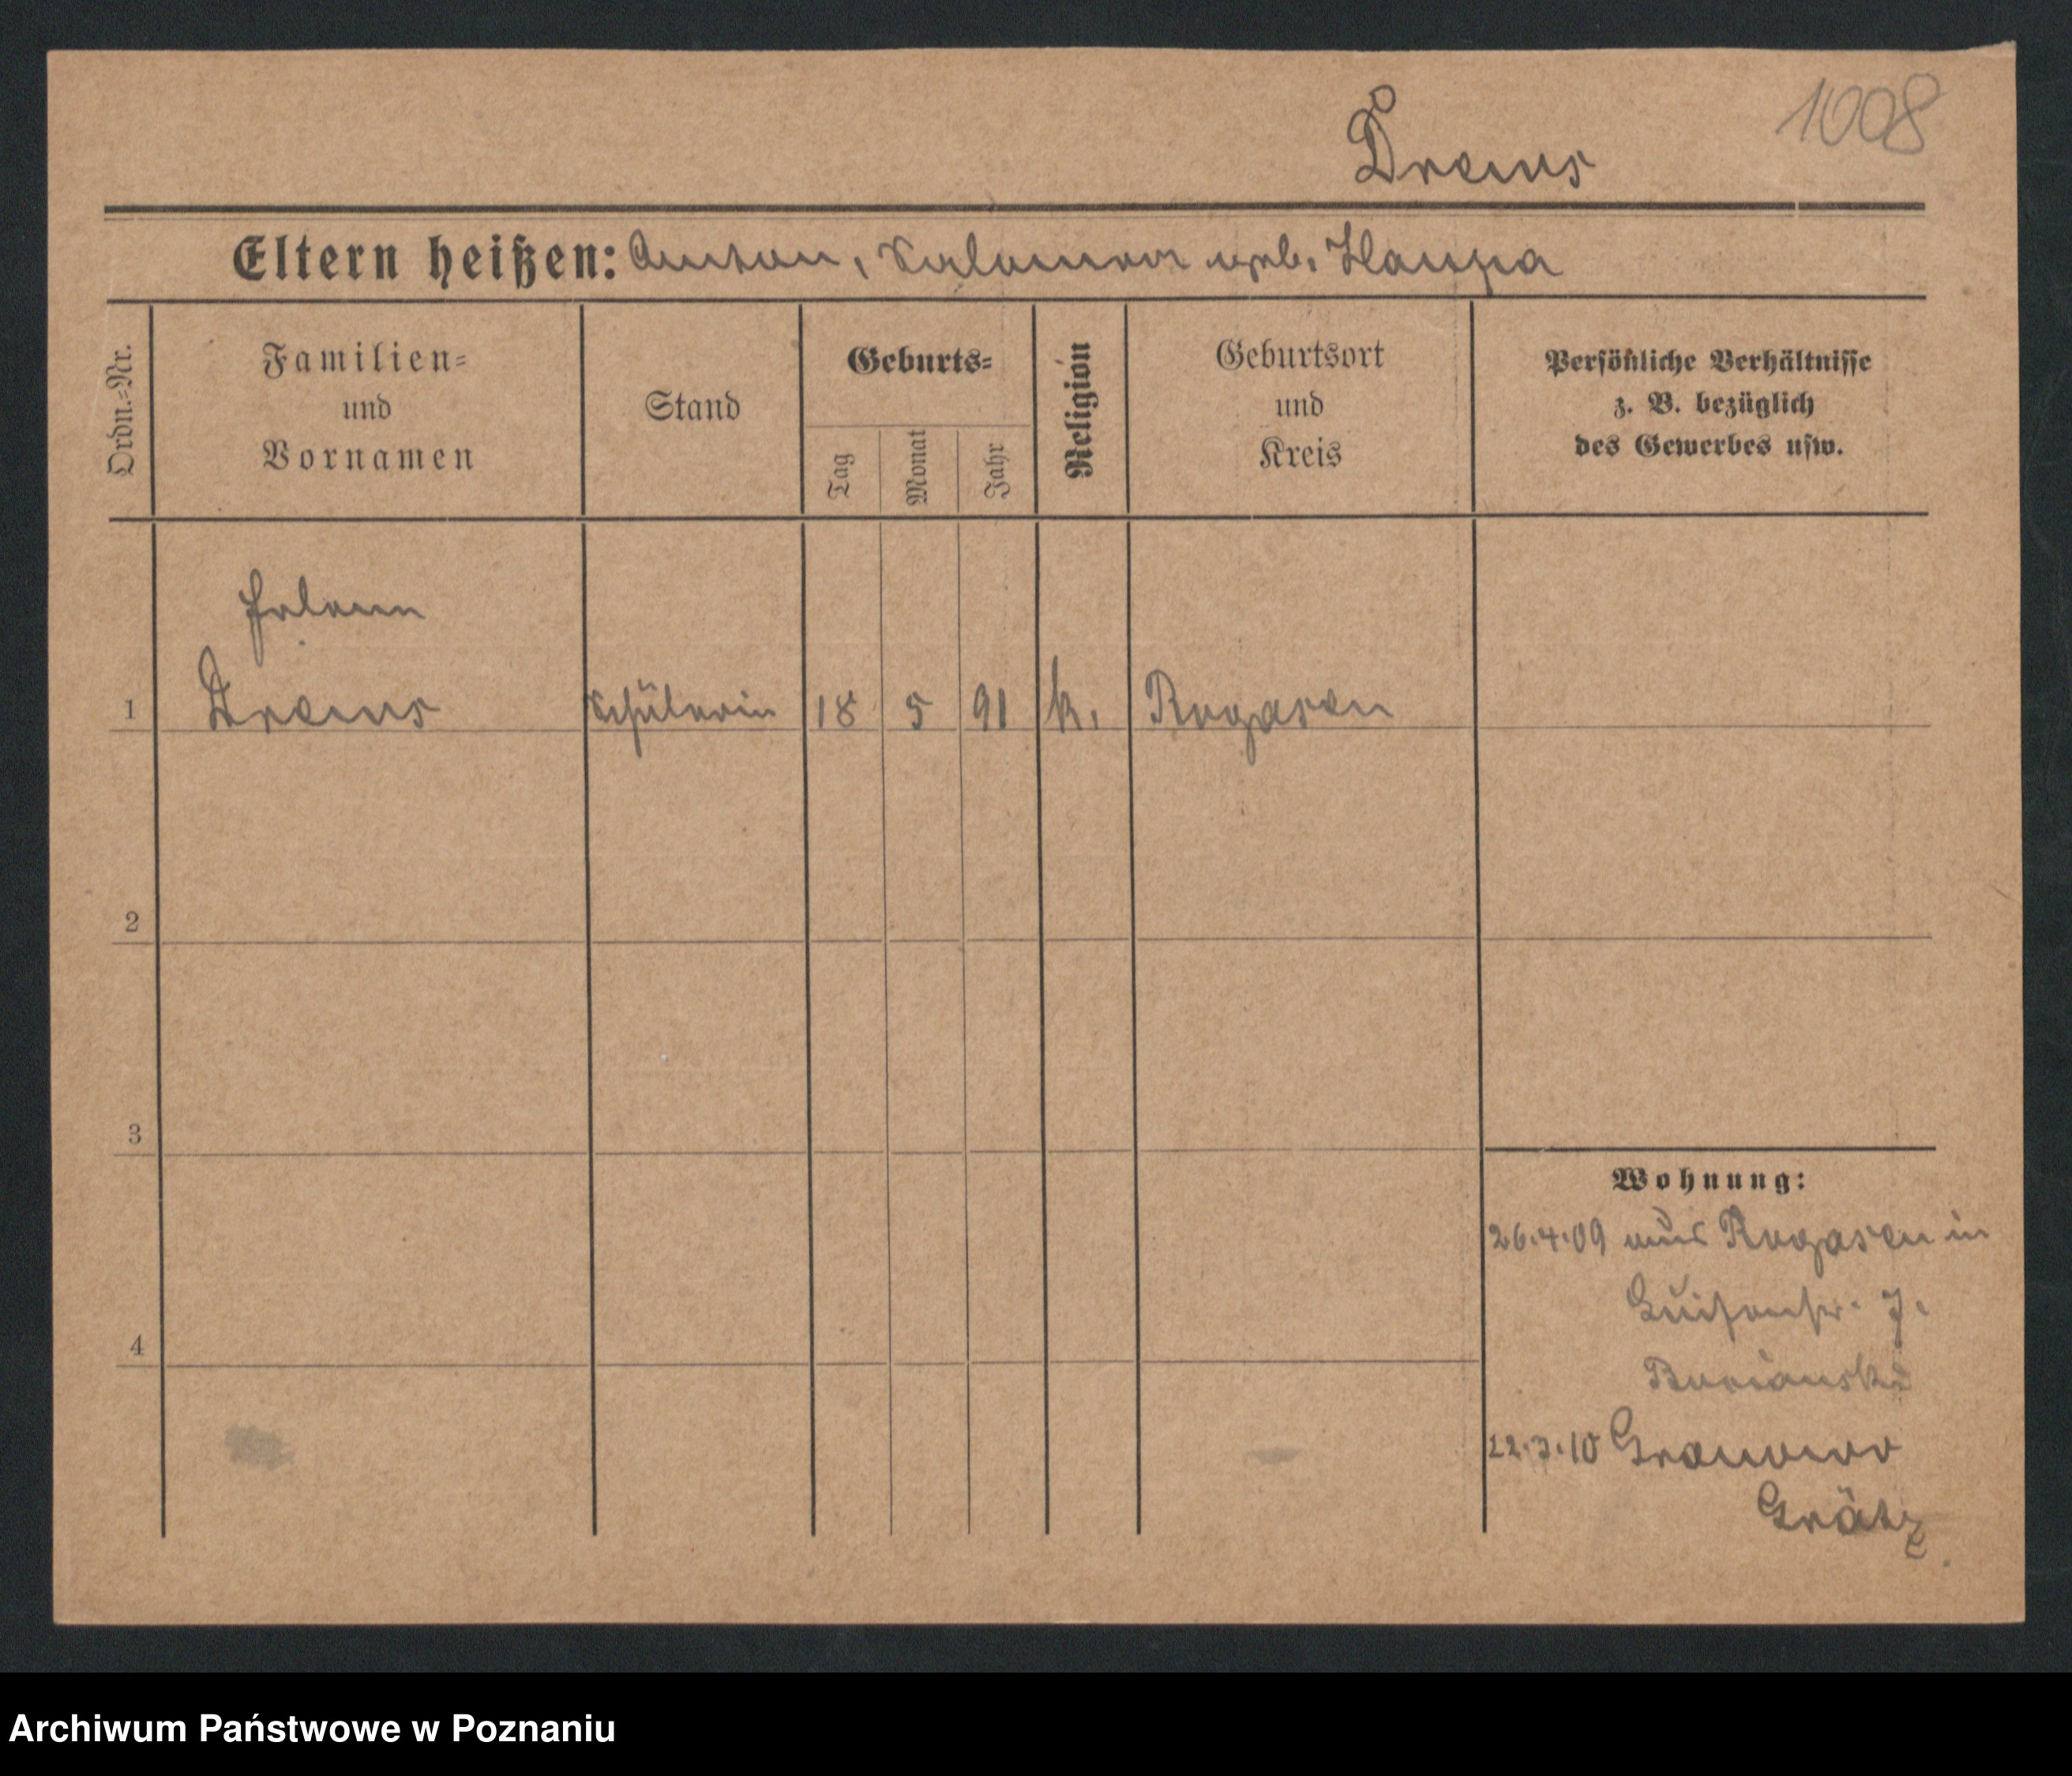 1008
Drews
Eltern heißen: Anton, Salomea geb. Haupa
Ordn.=Nr.
Familien=
und
Vornamen
Stand
Geburts=
Tag
Monat
Jahr
Religion
Geburtsort
und
Kreis
Persönliche Verhältnisse
z. B. bezüglich
des Gewerbes usw.
Helene
1 Drews Schülerin 18 5 91 k. Rogasen
2
3
4
Wohnung:
26.4.09 aus Rogasen in
Luisenstr. 7.
22.3.10 Granowo
Grätz
Archiwum Państwowe w Poznaniu